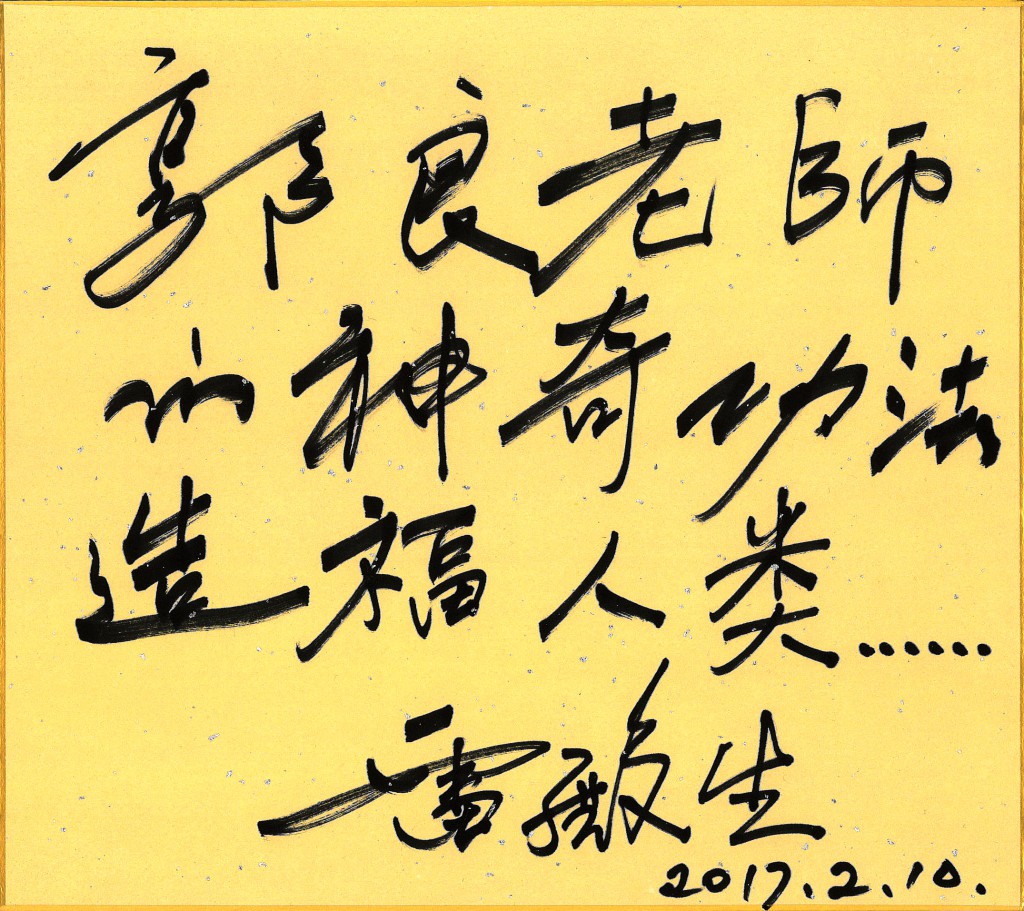 郭良老師
的神奇功法
造福人类……
雷殿生
2017.2.10.